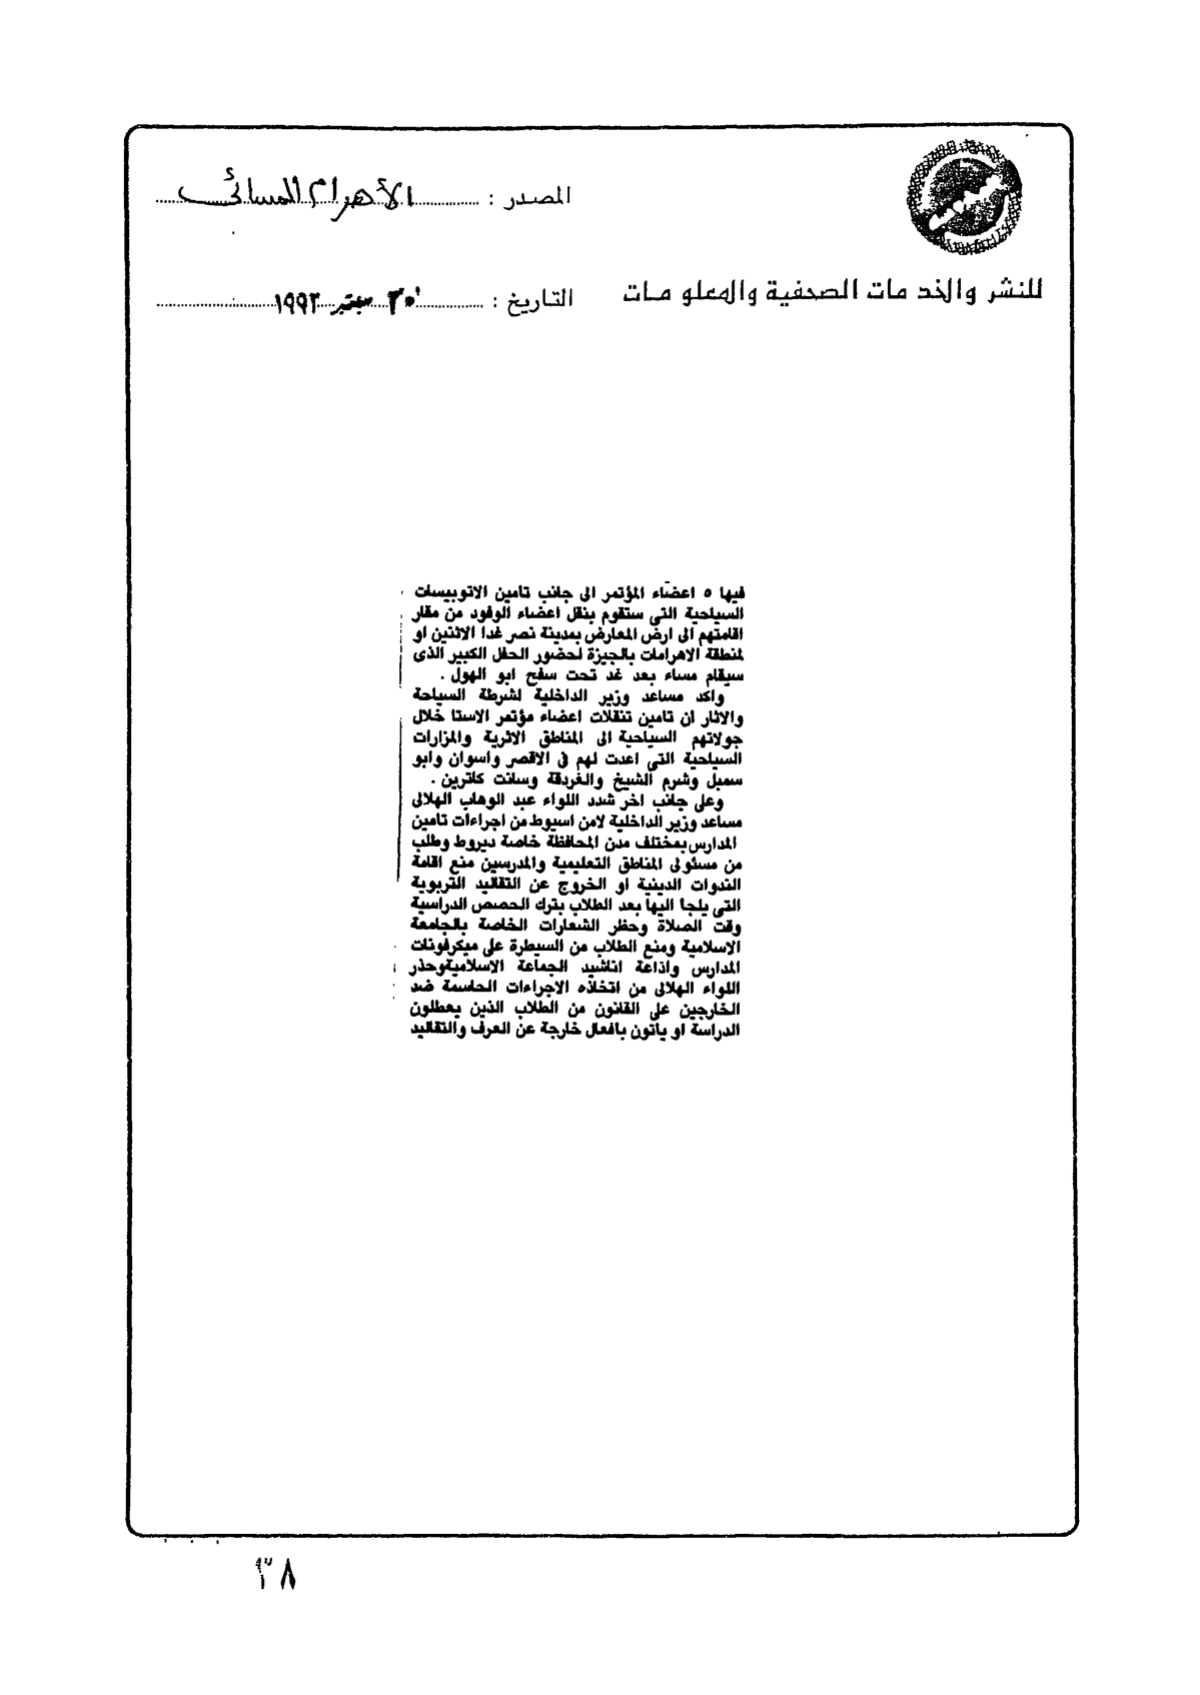 المصدر : الأهرام المسائى
للنشر والخدمات الصحفية والمعلومات
التاريخ : ٢٠ سبتمبر ١٩٩٢
فيها ٥ اعضاء المؤتمر الى جانب تامين الاتوبيسات
السياحية التى ستقوم بنقل اعضاء الوفود من مقار
اقامتهم الى ارض المعارض بمدينة نصر غدا الاثنين او
لمنطقة الاهرامات بالجيزة لحضور الحفل الكبير الذى
سيقام مساء بعد غد تحت سفح ابو الهول .
واكد مساعد وزير الداخلية لشرطة السياحة
والاثار ان تامين تنقلات اعضاء مؤتمر الاستا خلال
جولاتهم السياحية الى المناطق الاثرية والمزارات
السياحية التى اعدت لهم فى الاقصر واسوان وابو
سمبل وشرم الشيخ والغردقة وسانت كاترين .
وعلى جانب اخر شدد اللواء عبد الوهاب الهلالى
مساعد وزير الداخلية لامن اسيوط من اجراءات تامين
المدارس بمختلف مدن المحافظة خاصة ديروط وطلب
من مسئولى المناطق التعليمية والمدرسين منع اقامة
الندوات الدينية او الخروج عن التقاليد التربوية
التى يلجا اليها بعد الطلاب بترك الحصص الدراسية
وقت الصلاة وحظر الشعارات الخاصة بالجامعة
الاسلامية ومنع الطلاب من السيطرة على ميكرفونات
المدارس واذاعة اناشيد الجماعة الاسلاميةوحذر
اللواء الهلالى من اتخاذه الاجراءات الحاسمة ضد
الخارجين على القانون من الطلاب الذين يعطلون
الدراسة او ياتون بافعال خارجة عن العرف والتقاليد